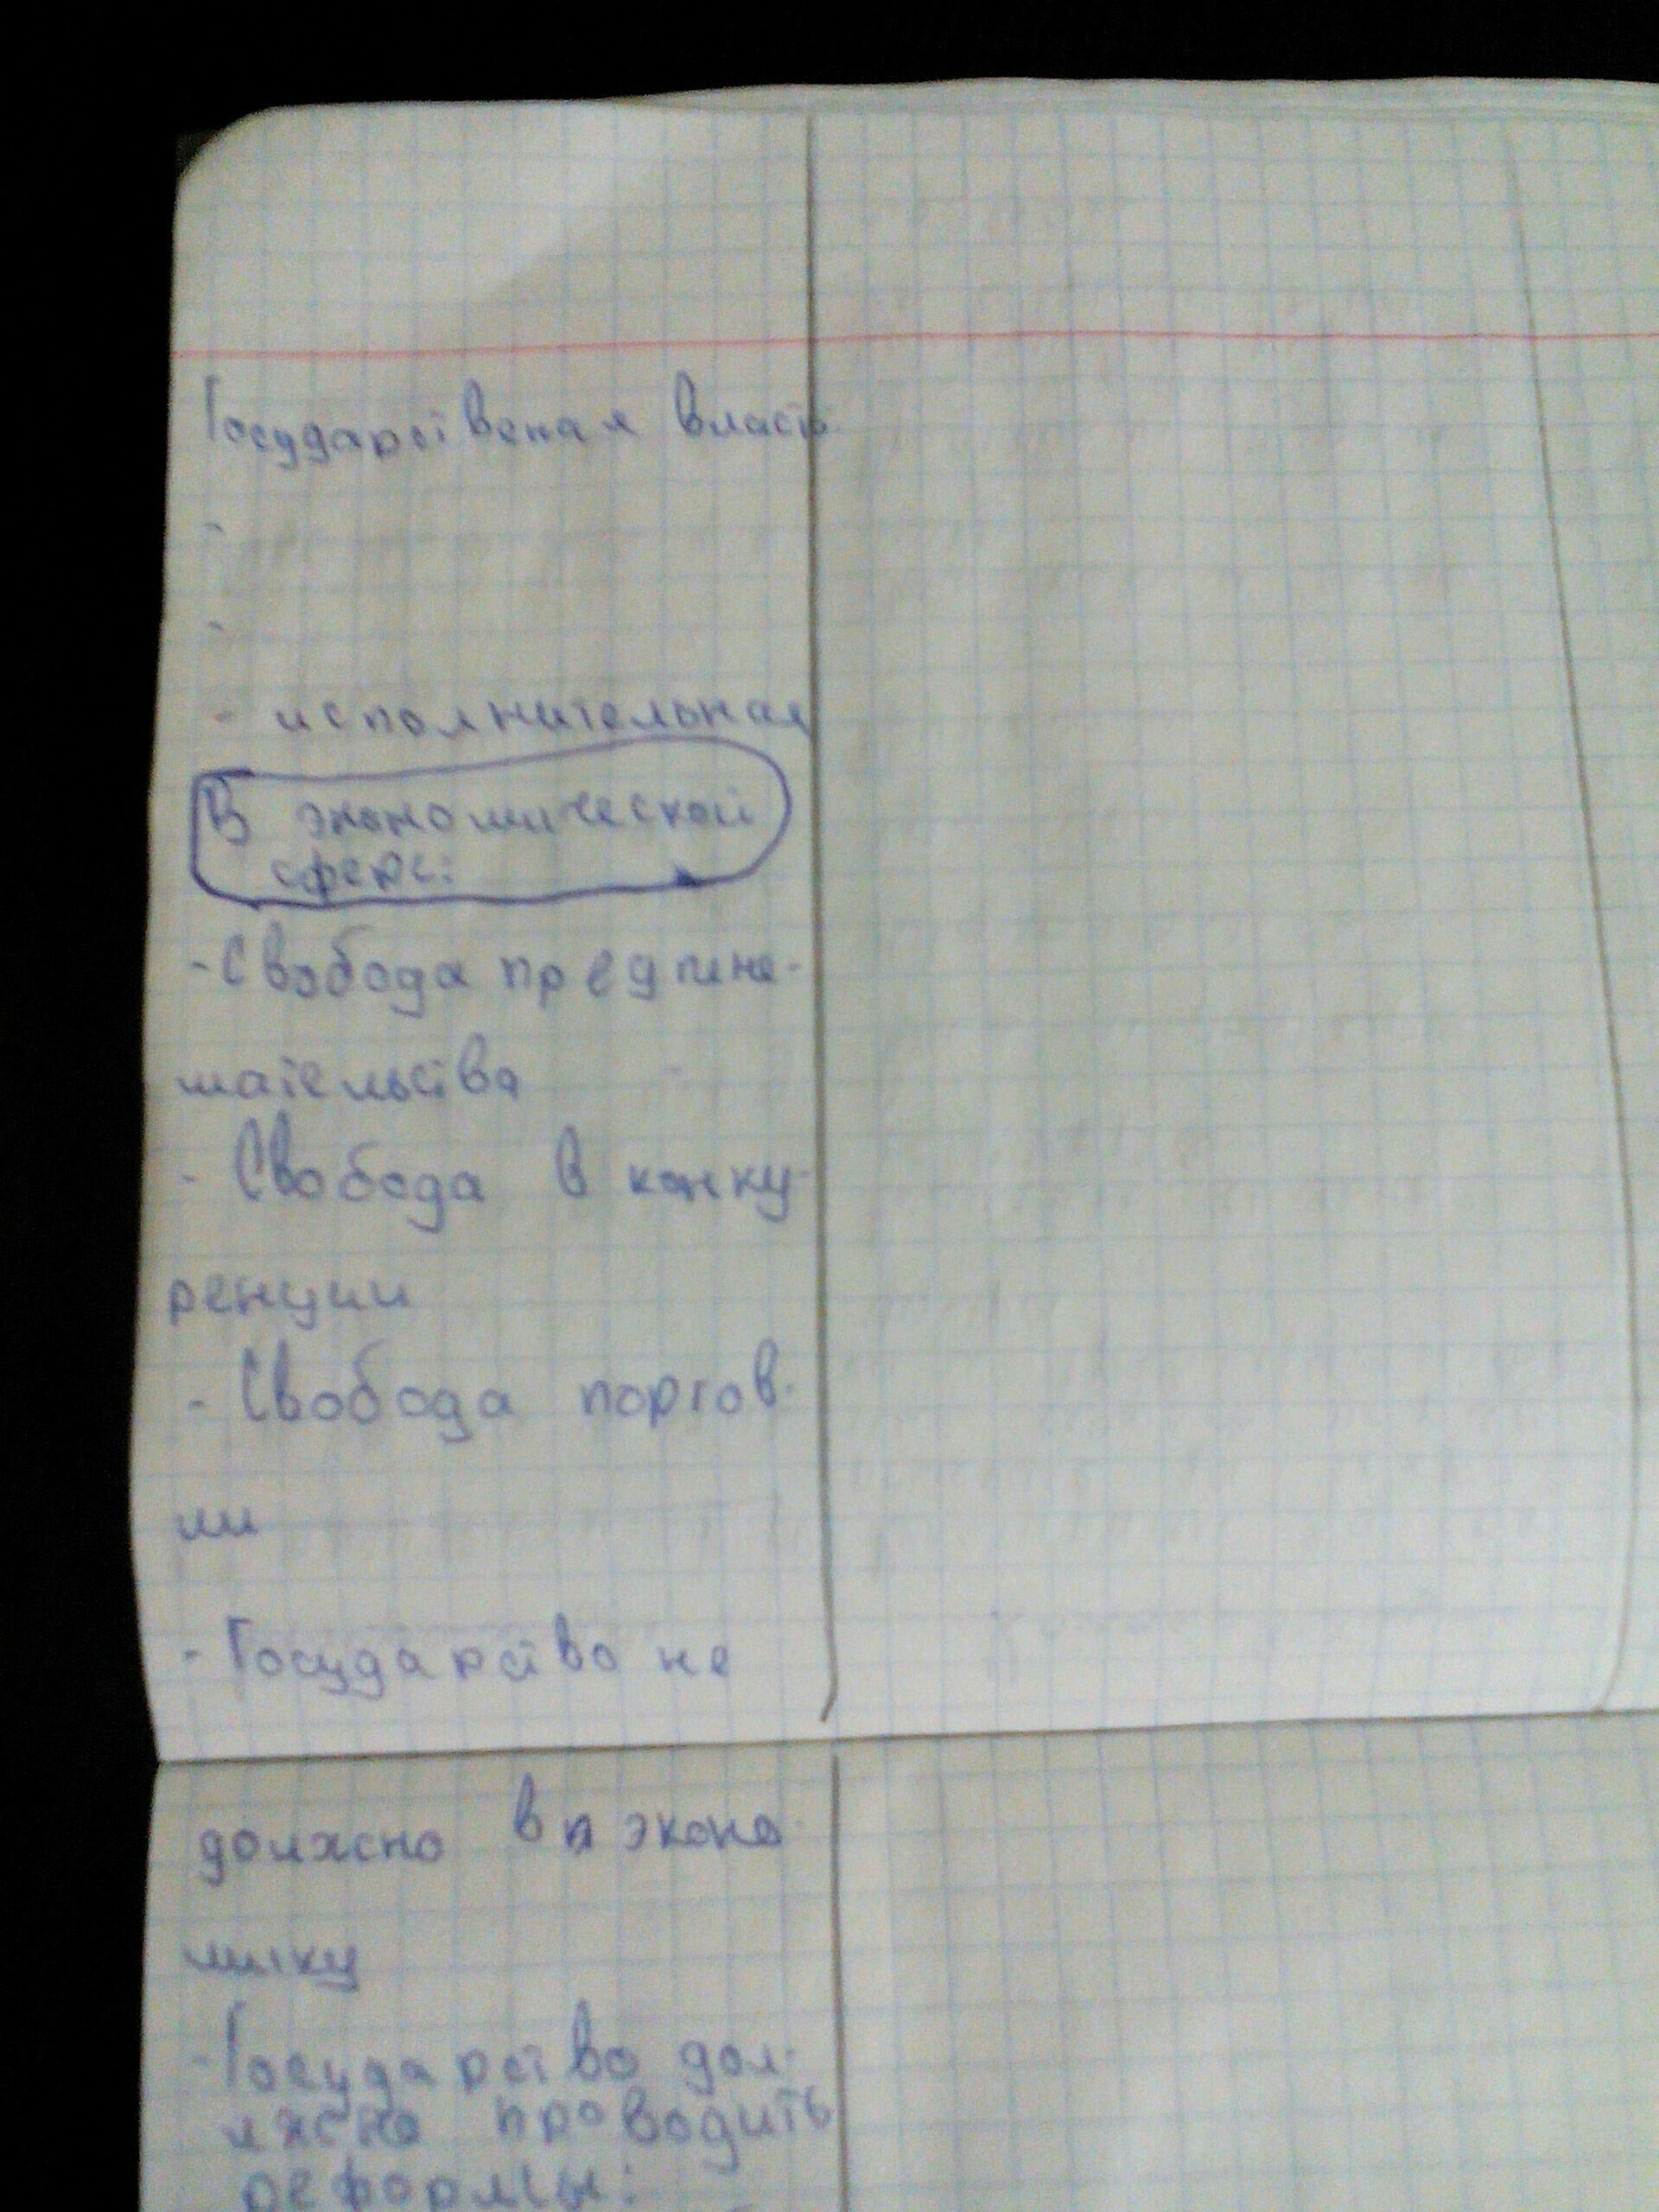 Государственая власть
-
-
- исполнительная
В экономической
сфере:
- Свобода предпине-
мательства
- Свобода в конку-
ренции
- Свобода поргов-
ли
- Государство не
должно вп эконо-
мику
- Государство дол-
лжно проводить
реформы: